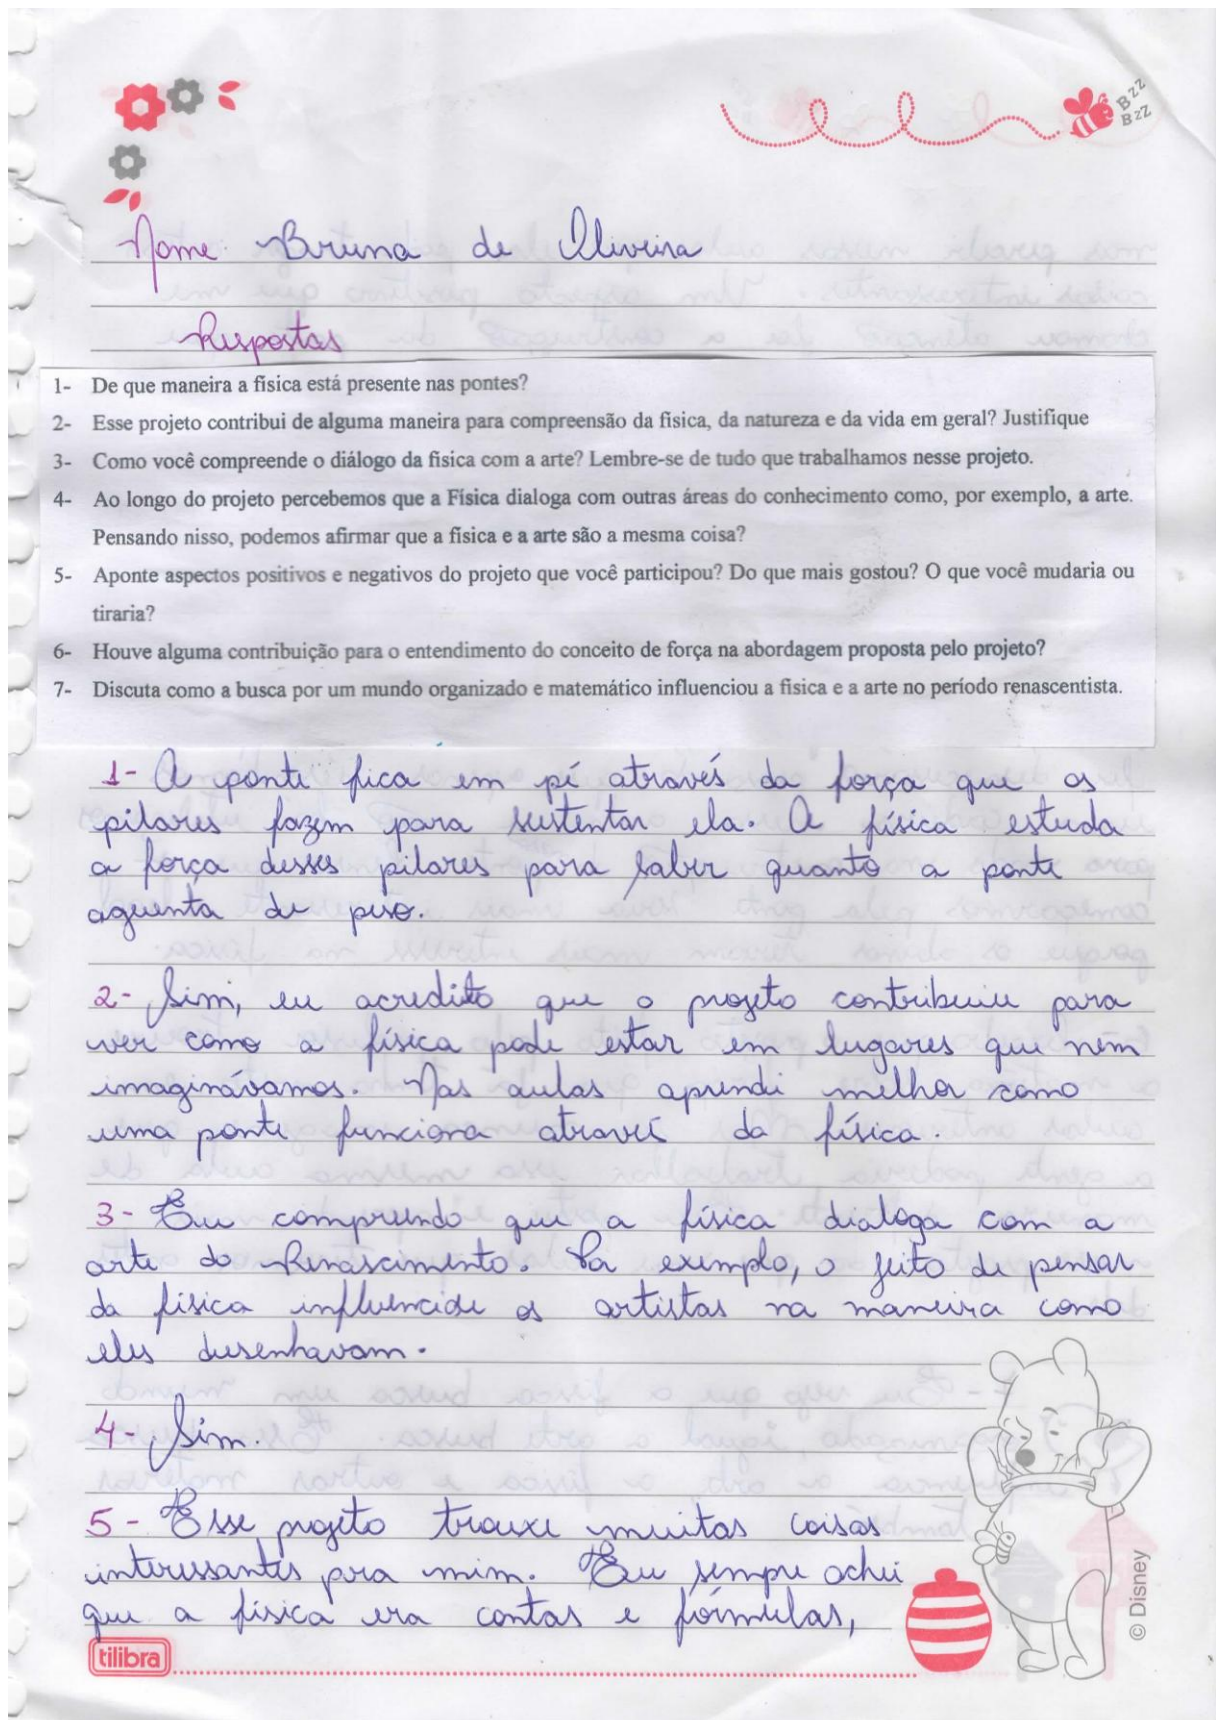 Bzz
Bzz
Nome: Bruna de Oliveira
Respostas
1- De que maneira a física está presente nas pontes?
2- Esse projeto contribui de alguma maneira para compreensão da fisica, da natureza e da vida em geral? Justifique
3- Como você compreende o diálogo da fisica com a arte? Lembre-se de tudo que trabalhamos nesse projeto.
4- Ao longo do projeto percebemos que a Física dialoga com outras áreas do conhecimento como, por exemplo, a arte.
Pensando nisso, podemos afirmar que a física e a arte são a mesma coisa?
5- Aponte aspectos positivos e negativos do projeto que você participou? Do que mais gostou? O que você mudaria ou
tiraria?
6- Houve alguma contribuição para o entendimento do conceito de força na abordagem proposta pelo projeto?
7- Discuta como a busca por um mundo organizado e matemático influenciou a fisica e a arte no período renascentista.
1- A ponte fica em pé através da força que os
pilares fazem para sustentar ela. A física estuda
a força desses pilares para saber quanto a ponte
aguenta de peso.
2- Sim, eu acredito que o projeto contribuiu para
ver como a física pode estar em lugares que nem
imaginávamos. Nas aulas aprendi melhor como
uma ponte funciona através da física.
3- Eu compreendo que a física dialoga com a
arte do Renascimento. Por exemplo, o jeito de pensar
da física os artistas na maneira como
eles desenhavam.
4- Sim.
5- Esse projeto trouxe muitas coisas
interessantes pra mim. Eu sempre achei
que a física era contas e fórmulas,
tilibra
© Disney